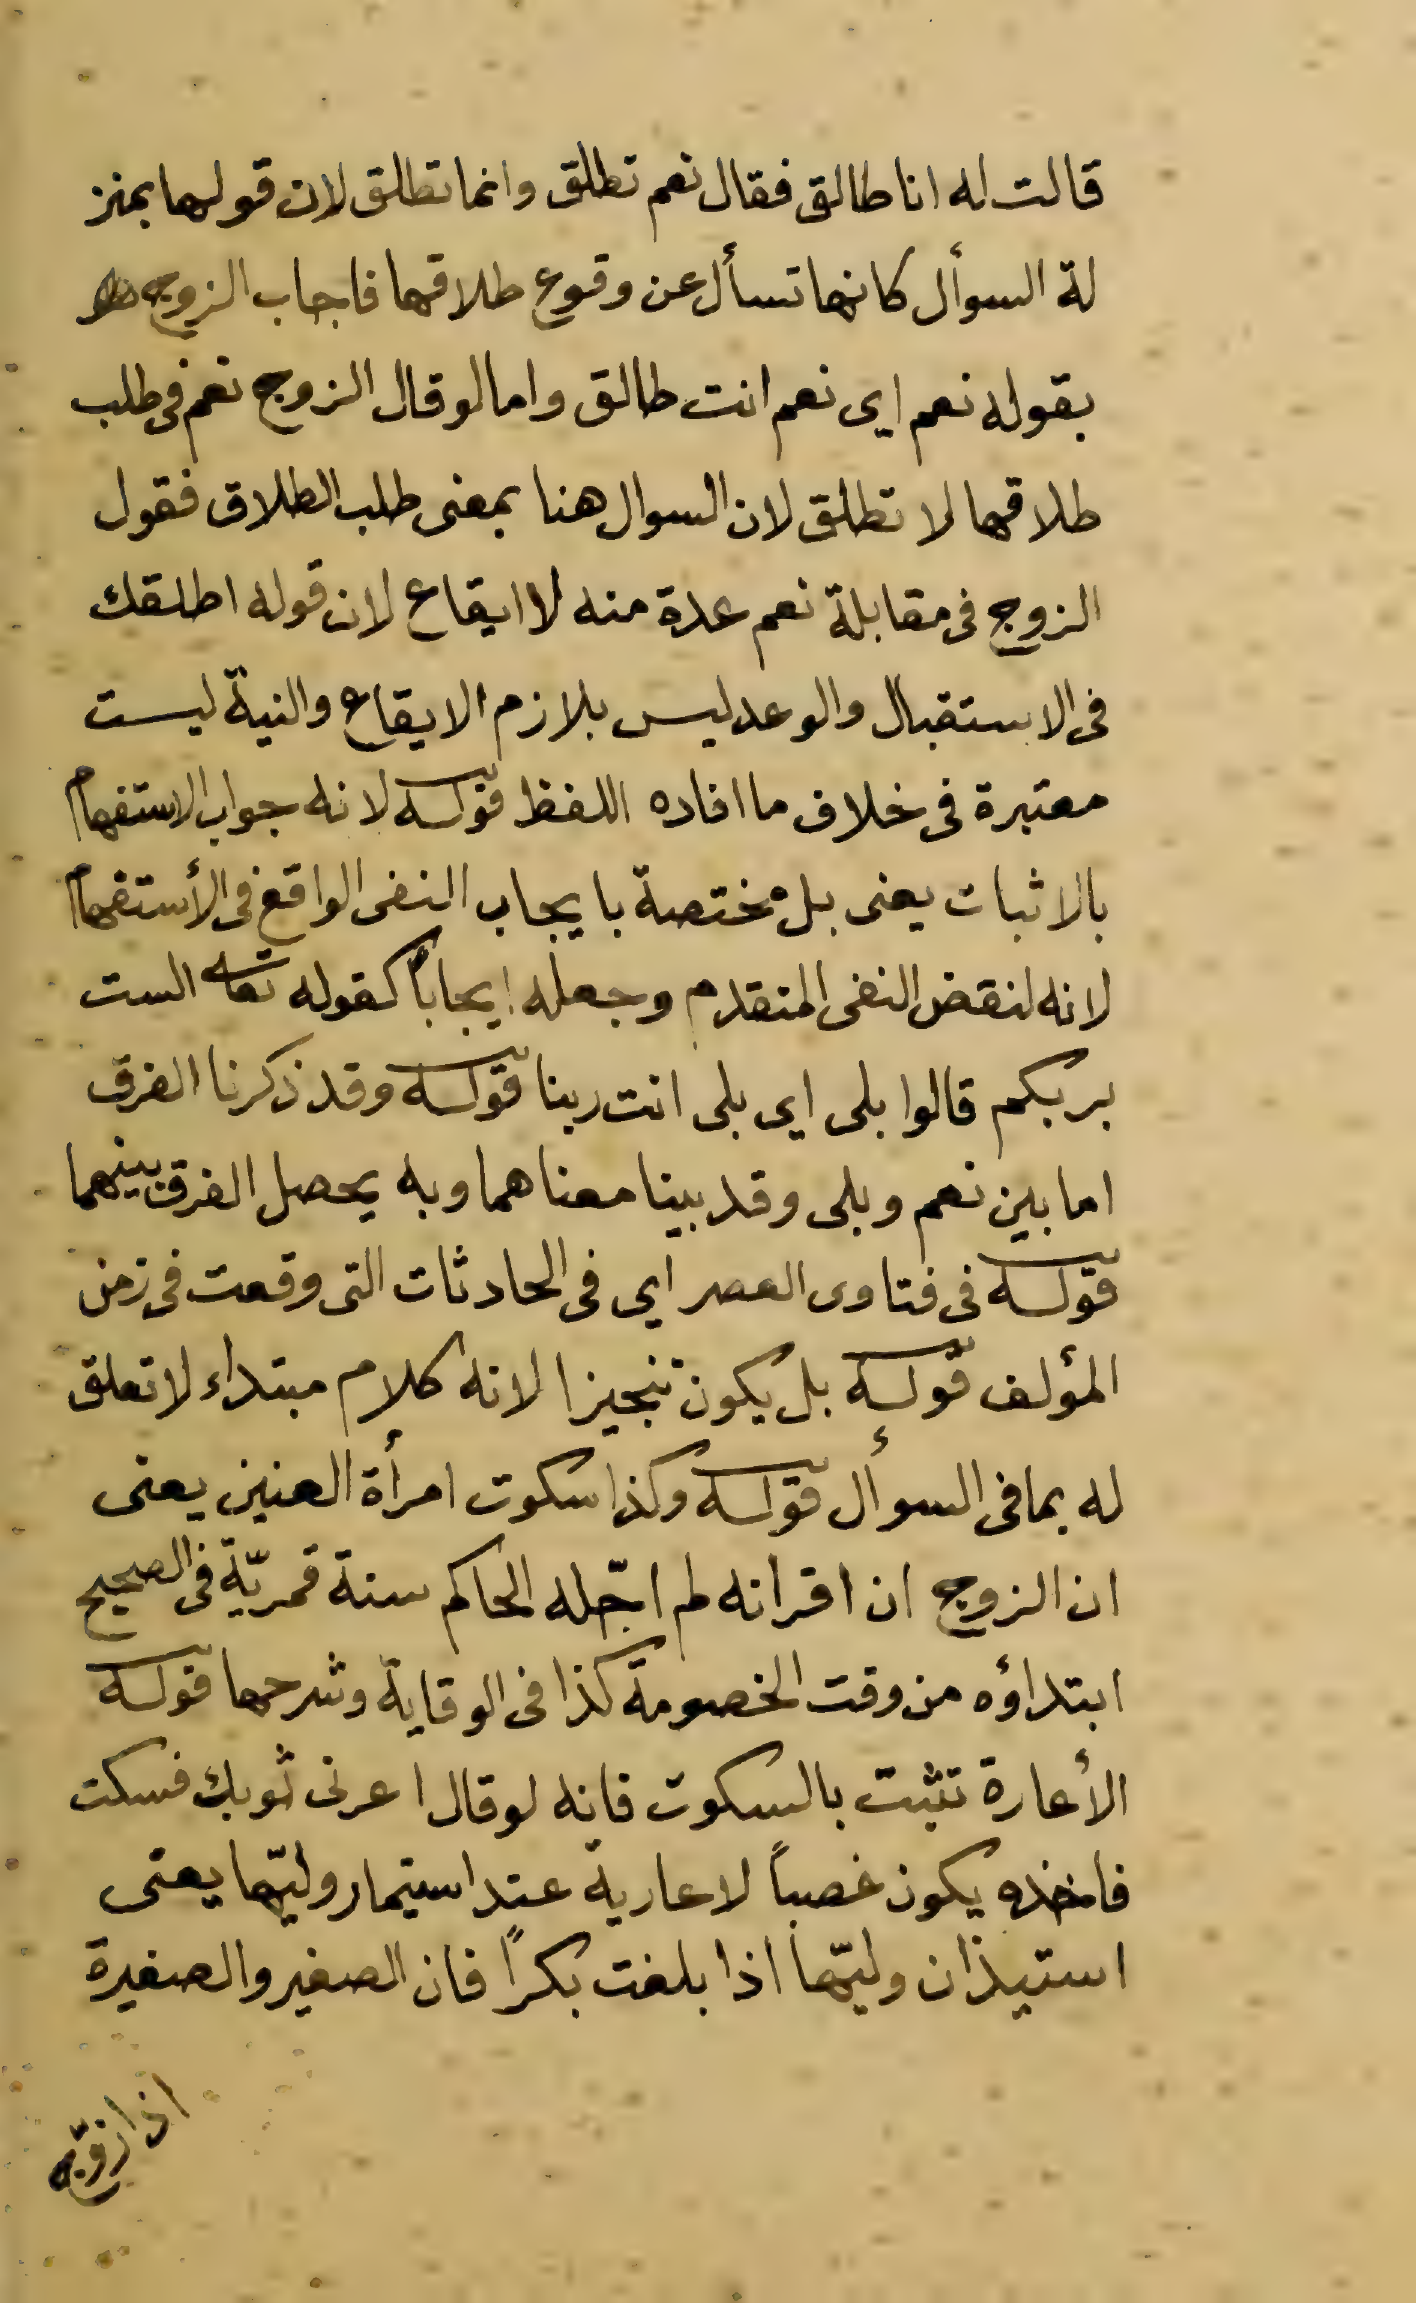 قالت له انا طالق فقال نعم تطلق وانما تطلق لان قولها بمنز
لة السوأل كانها تسأل عن وقوع طلاقها فاجاب الزوج
بقوله نعم اى نعم انت طالق واما لو قال الزوج نعم فى طلب
طلاقها لا تطلق لان السوال هنا بمعنى طلب الطلاق فقول
الزوج فى مقابلة نعم عدة منه لا ايقاع لان قوله اطلقك
فى الاستقبال والوعد ليس بلازم الايقاع والنية ليست
معتبرة فى خلاف ما افاده اللفظ قوله لانه جواب الاستفهام
بالاثبات يعنى بل مختصة بايجاب النفى الواقع فى الأستفهام
لانه لنقض النفى المتقدم وجعله ايجاباً كقوله تعا الست
بربكم قالوا بلى اى بلى انت ربنا قوله وقد ذكرنا الفرق
اما بين نعم وبلى وقد بينا معناهما وبه يحصل الفرق بينهما
قوله فى فتاوى العصر اى فى الحادثات التى وقعت فى زمن
المؤلف قوله بل يكون تنجيزا لانه كلام مبتداء لا تعلق
له بما فى السوأل قوله وكذا سكوت امرأة العنين يعنى
ان الزوج ان اقر انه لم اجّله الحاكم سنة قمريّة فى الصحيح
ابتداؤه من وقت الخصومة كذا فى الوقاية وشرحها قوله
الأعارة تثبت بالسكوت فانه لو قال اعرنى ثوبك فسكت
فاخذه يكون غصباً لا عارية عند استيمار وليّها يعنى
استيذان وليّها اذا بلغت بكراً فان الصغير والصغيرة
اذا زوّجه